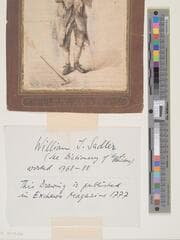 William T. Sadler
(See Dictionary of
worked 1768-88
This Drawing is published
in Exshaws Magazine 1772